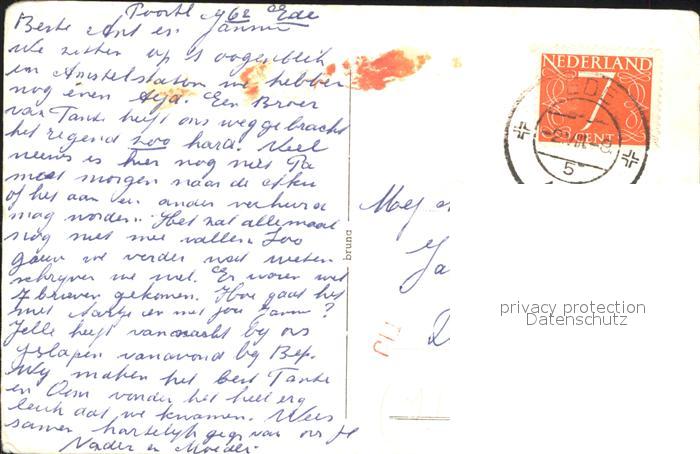 Ede
Beste Ant en Jannie
We zitten op 't oogenblik
in Amstelstation we hebben
nog even tijd. Een Broer
van Tante heeft ons weggebracht
het regend zoo hard. Veel
nieuws is hier nog niet Pa
moet morgen naar de
of het aan een ander verhuurd
mag worden. Het zal allemaal
nog niet mee vallen. Zoo
gauw we verder wat weten
schrijven we wel. Er waren wel
7 brieven gekomen. Hoe gaat het
met en met jou Jannie?
Jelle heeft vannacht bij ons
geslapen vanavond bij Bep.
Wij maken het best Tante
en Oom vonden het heel erg
leuk dat we kwamen. Wees
samen hartelijk gegr van ons
Vader en Moeder.
bruna
NEDERLAND
7
CENT
EDE
5
Mej
privacy protection
Datenschutz